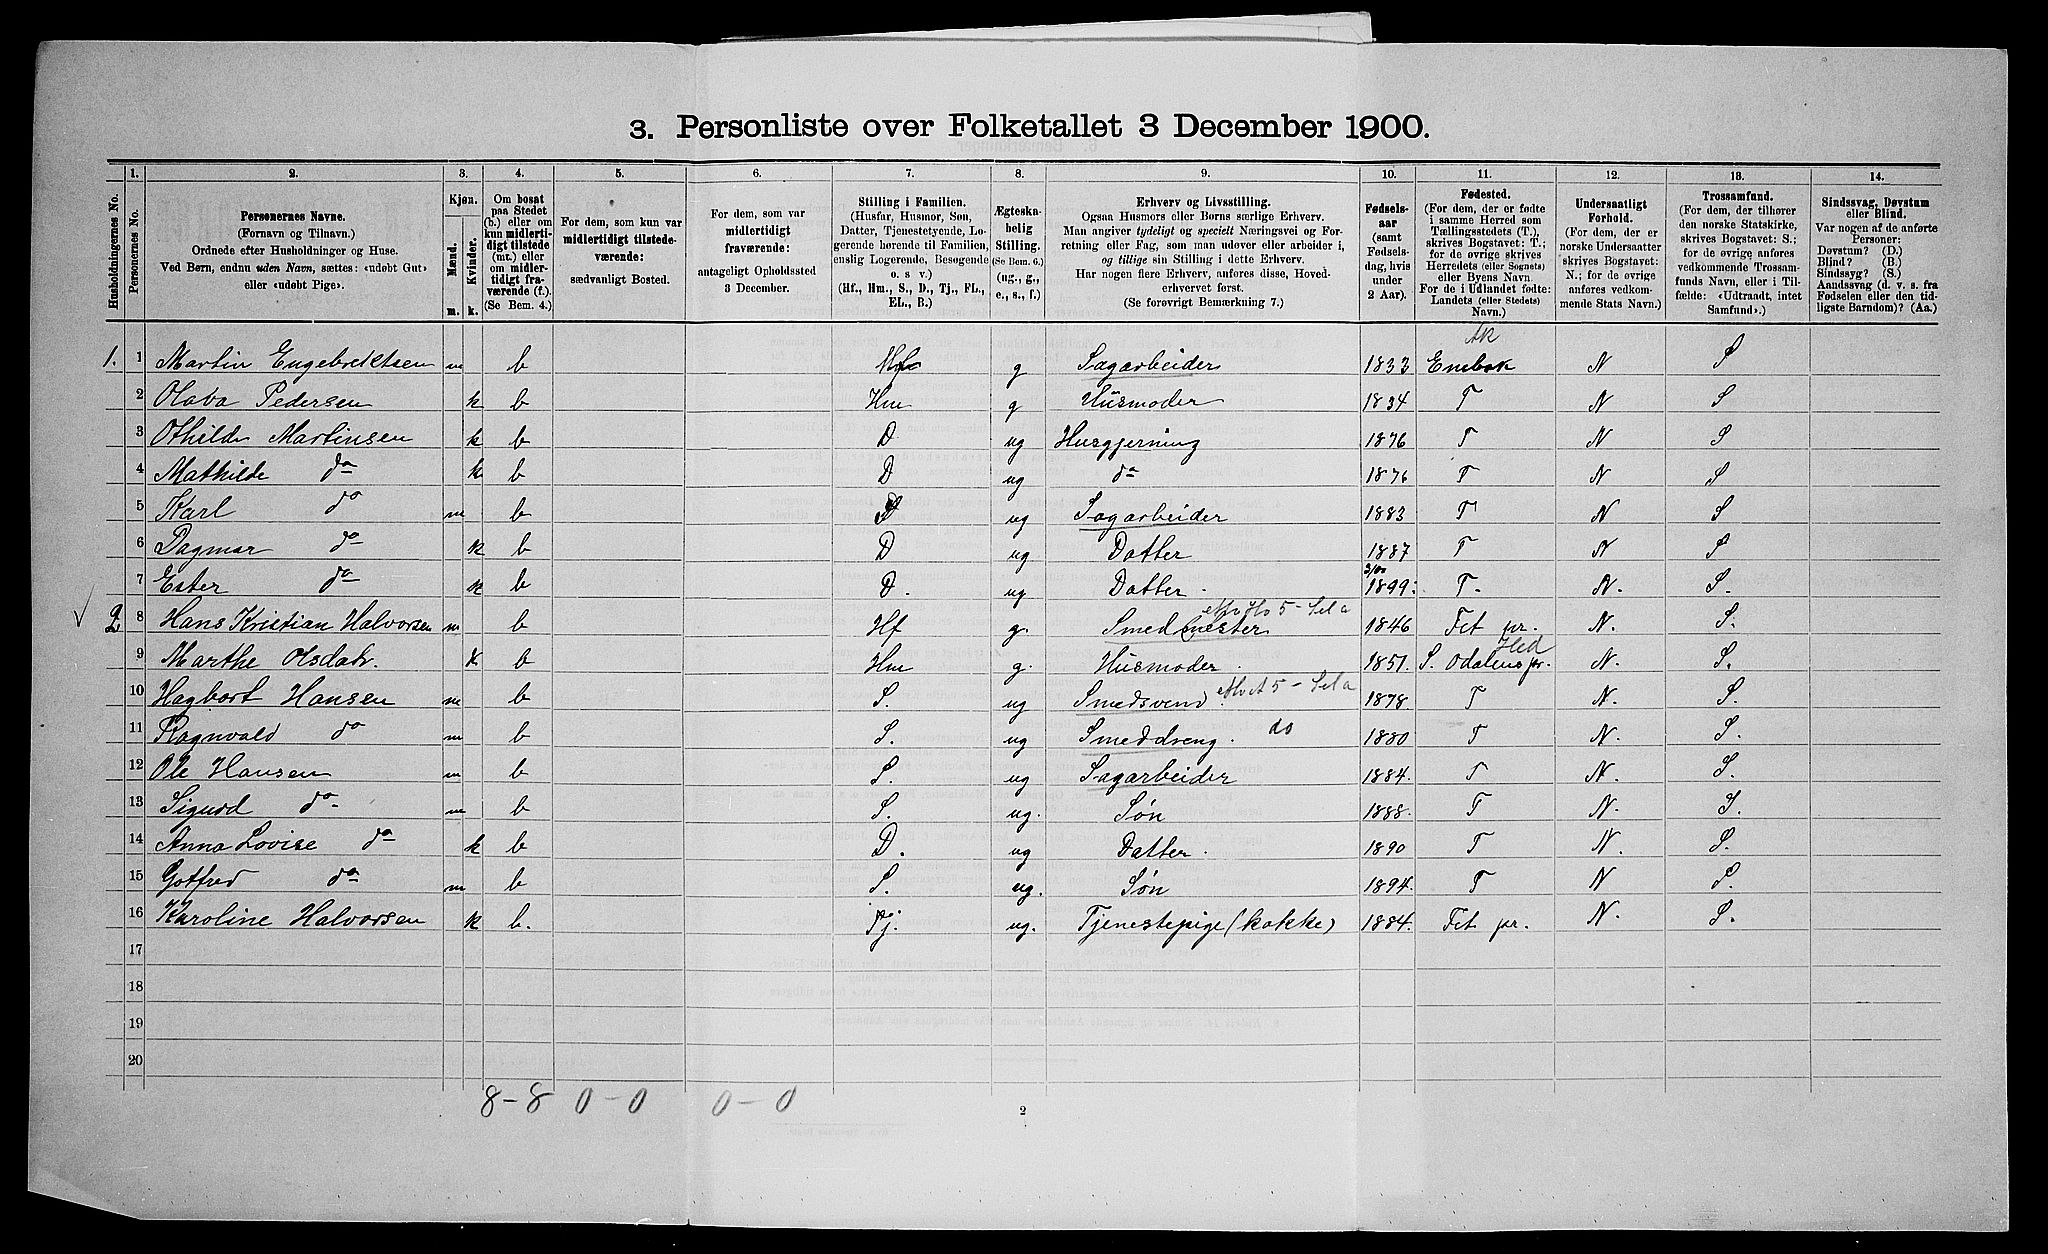 3. Personliste over Folketallet 3 December 1900.
Husholdningernes No.
1.
Personernes No.
2.
Personernes Navne.
(Fornavn og Tilnavn.)
Ordnede efter Husholdninger og Huse.
Ved Børn, endnu uden Navn, sættes: «udøbt Gut»
eller «udøbt Pige».
3.
Kjøn.
Mænd.
Kvinder.
m. k.
4.
Om bosat
paa Stedet
(b.) eller om
kun midlerti-
digt tilstede
(mt.) eller
om midler-
tidigt fra-
værende (f.)
(Se Bem. 4.)
5.
For dem, som kun var
midlertidigt tilstede-
værende:
sædvanligt Bosted.
6.
For dem, som var
midlertidigt
fraværende:
antageligt Opholdssted
3 December.
7.
Stilling i Familien.
(Husfar, Husmor, Søn,
Datter, Tjenestetyende, Lo-
gerende hørende til Familien,
enslig Logerende, Besøgende
o. s v.)
(Hf., Hm., S., D., Tj., FL.,
EL., B.)
8.
Ægteska-
belig
Stilling.
(Se Bem. 6.)
(ug., g.,
e., s., f.)
9.
Erhverv og Livsstilling.
Ogsaa Husmors eller Børns særlige Erhverv.
Man angiver tydeligt og specielt Næringsvei og For-
retning eller Fag, som man udøver eller arbeider i,
og tillige sin Stilling i dette Erhverv.
Har nogen flere Erhverv, anføres disse, Hoved-
erhvervet først.
(Se forøvrigt Bemærkning 7.)
10.
Fødsels-
aar
(samt
Fødsels-
dag, hvis
under
2 Aar).
11.
Fødested.
(For dem, der er fødte
i samme Herred som
Tællingsstedets (T.),
skrives Bogstavet: T.;
for de øvrige skrives
Herredets (eller Sognets)
eller Byens Navn.
For de i Udlandet fødte:
Landets (eller Stedets)
Navn.)
12.
Undersaatligt
Forhold.
(For dem, der er
norske Undersaatter
skrives Bogstavet:
N.; for de øvrige
anføres vedkom-
mende Stats Navn.)
13.
Trossamfund.
(For dem, der tilhører
den norske Statskirke,
skrives Bogstavet: S.;
for de øvrige anføres
vedkommende Trossam-
funds Navn, eller i Til-
fælde: «Udtraadt, intet
Samfund».)
14.
Sindssvag, Døvstum
eller Blind.
Var nogen af de anførte
Personer:
Døvstum? (D.)
Blind? (B.)
Sindssyg? (S.)
Aandssvag (d. v. s. fra
Fødselen eller den tid-
ligste Barndom)? (Aa.)
Ak
1. 1 Martin Engebrektsen m b Hf g Sagarbeider 1833 Enebak N S
2 Olava Pedersen k b Hm g Husmoder 1834 T N S
3 Othilde Martinsen k b D ug Husgjerning 1876 T N S
4 Mathilde do k b D ug do 1876 T N S
5 Karl do m b ug Sagarbeider 1883 T N S
6 Dagmar do k b D ug Datter 1887 T N S
3/10
7 Ester do k b D. ug Datter. 1899. T. N. S.
√ 2. 8 Hans Kristian Halvorsen m b Hf g. Smedmester 1846 Fet pr. N. S.
Hed
9 Marthe Olsdatr. k b Hm g. Husmoder. 1851. S. Odalens pr. N. S.
10 Hagbart Hansen m b S. ug Smedsvend. 1878. T N. S.
11 Ragnvald do m b S. ug Smeddreng. do 1880 T N. S.
12 Ole Hansen m b S. ug Sagarbeider 1884. T N. S.
13 Sigurd do m b S. ug. Søn 1888. T N. S.
14 Anna Lovise do k b D. ug Datter. 1890 T N. S.
15 Gotfred do m b S. ug. Søn 1894. T N S.
16 Karoline Halvorsen k b. Tj. ug. Tjenestepige (kokke) 1884. Fet pr. N. S.
17
18
19
20
8-8 0-0 0-0
2